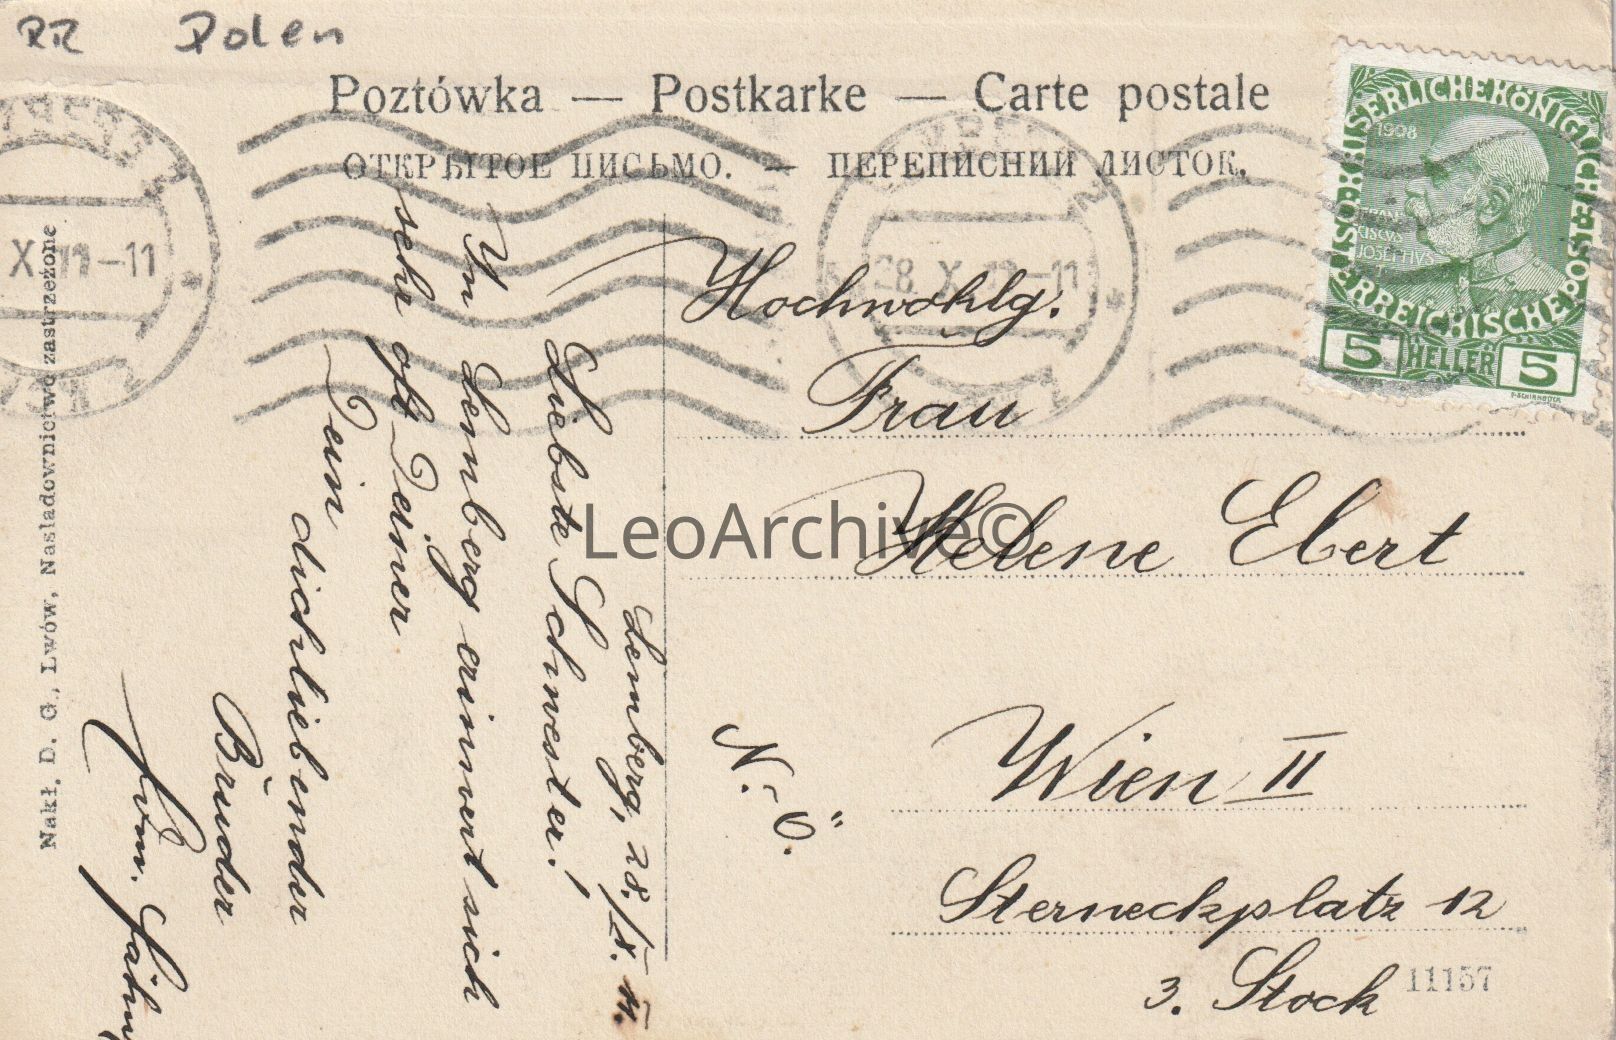 RR Polen
Poztówka — Postkarke — Carte postale
ОТКРЫТОЕ ПИСЬМО. — ПЕРЕПИСНИЙ ЛИСТОК.
KAISERLICHE KÖNIGLICHE
1908
ÖSTERREICHISCHE POST
5 HELLER 5
X -11
28. X -11
Hochwohlg.
Frau
Helene Ebert
Wien II
N.-Ö.
Sterneckplatz 12
3. Stock
11157
Lemberg, 28./X.
Liebste Schwester!
In Lemberg erinnert sich
sehr oft Deiner
Dein
dichliebender
Bruder
Nakł. D. G., Lwów, Naśladownictwo zastrzeżone
LeoArchive©